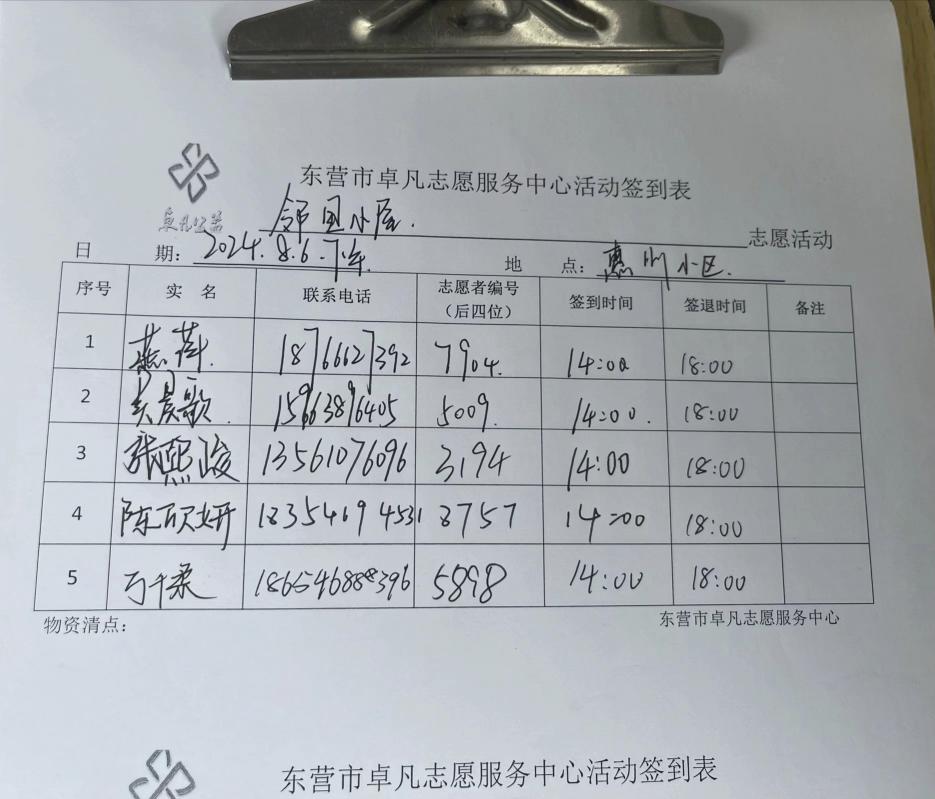 东营市卓凡志愿服务中心活动签到表
卓凡公益
邻里小屋. 志愿活动
日 期: 2024.8.6.下午. 地 点: 惠州小区.
序号 实 名 联系电话 志愿者编号（后四位） 签到时间 签退时间 备注
1 燕 18766627392 7904. 14:00 18:00
2 晨歌. 15963896405 5009. 14:00. 18:00
3 张熙骏 13561076096 3194 14:00 18:00
4 陈妍 18354694531 8757 14:00 18:00
5 万千柔 5898 14:00 18:00
物资清点: 东营市卓凡志愿服务中心
东营市卓凡志愿服务中心活动签到表